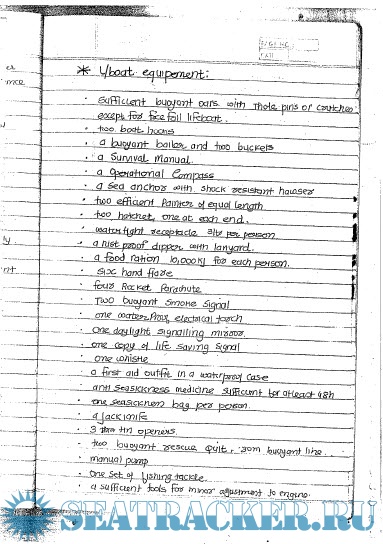 * L/boat equipement:
. sufficient buoyant oars with thole pins or crutches
except for free fall lifeboat.
. two boat hooks
. a buoyant bailer and two buckets
. a Survival Manual.
. a Operational Compass
. a Sea anchor with shock resistant hawser
. two efficient Painter of equal length
. two hatchet, one at each end.
. watertight receptacle 3ltr per person.
. a rust proof dipper with lanyard.
. a food ration 10,000KJ for each person.
. six hand flare
. four Rocket Parachute
. Two buoyant Smoke Signal
. one water proof electrical torch
. one daylight signalling mirror.
. one copy of life saving signal
. one whistle
. a first aid outfit in a waterproof case
. anti seasickness medicine sufficient for atleast 48h
. one seasickness bag per person.
. a jack knife
. 3 tin openers.
. two buoyant rescue quit, 30m buoyant line.
. manual pump
. one set of fishing tackle
. a sufficient tools for minor adjustment to engine.
SEATRACKER.RU